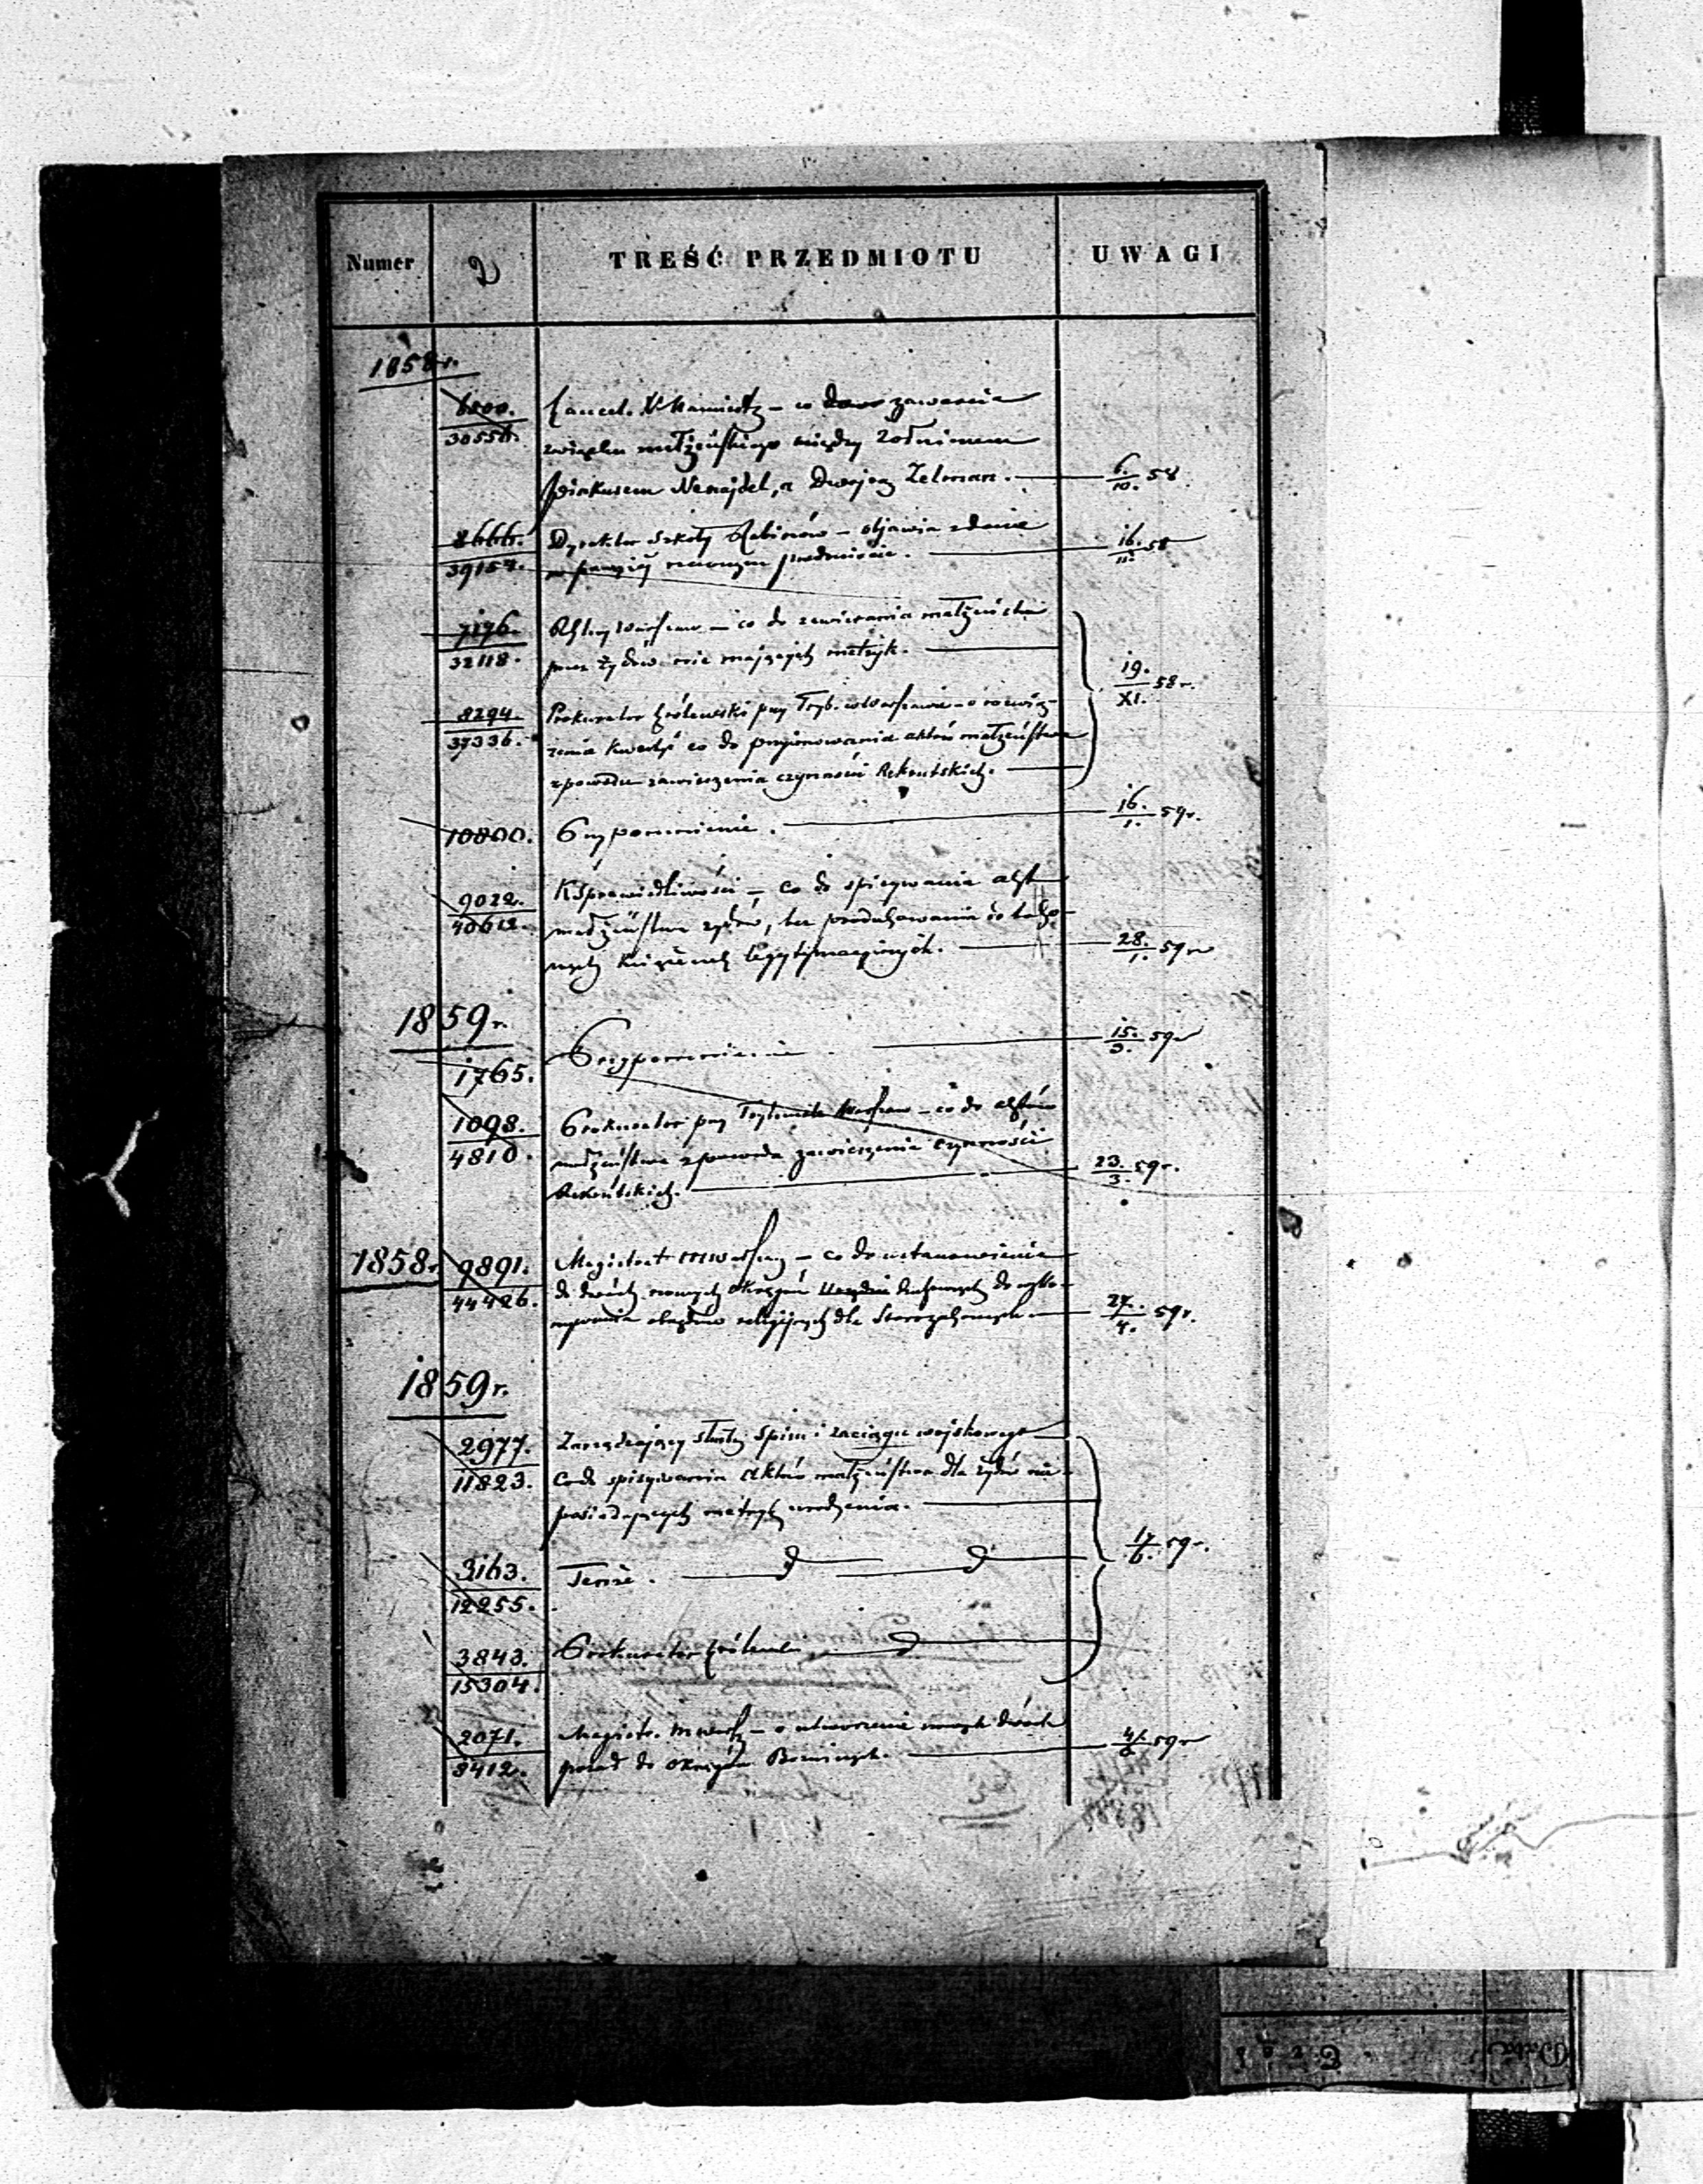 Numer D TREŚĆ PRZEDMIOTU UWAGI
1858 r.
6800. Kancel. Namiestz – co do zawarcia
30558. związku małżeńskiego między żołnierzem
Pinkusem Nenajdel, a Dwojrą Zelman. 6/10. 58.
8666. Dyrektor Szkoły Rabinów – objawia zdanie
39154. w powyżej rzeczonym przedmiocie. 16/11. 58
7176. Rząd Warszaw – co do zawierania małżeństw
32118. przez Żydów nie mających metryk.
19./XI. 58 r.
8294. Prokurator Królewski przy Tryb. w Warszawie – o rozwią-
37336. zenia kwestyi co do przyjmowania aktów małżeństwa
z powodu zawieszenia czynności Rekrutskich.
10800. Przypomnienie. 16./1. 59 r.
9022. K Sprawiedliwości – co do spisywania akt
40612. małżeństwa żydów, bez produkowania do tako-
wych książeczek legitymacyjnych. 28./1. 59 r
1859 r.
1765. Przypomnienie 15./3. 59 r
1098. Prokurator przy Trybunale Warszaw – co do aktów
4810. małżeństwa z powodu zawieszenia czynności
Rekrutskich. 23./3. 59 r.
1858 r. 9891. Magistrat m Warszawy – co do ustanowienia
44426. do dwóch nowych okręgów Urzędów duchownych do wyko-
nywania obrzędów religijnych dla Starozakonnych. 27./4. 59 r.
1859 r.
2977. Zarządzający służbą Spisu i zaciągu wojskowego
11823. co do spisywania Aktów małżeństwa dla żydów nie
posiadających metryk urodzenia.
17/6. 59 r.
3163. Tenże. d d
12255.
3843. Prokurator Królewski d
15304.
2071. Magistr. m Warsz – o utworzenie nowych dwóch
8412. posad do okręgów Bożniczych. 59 r